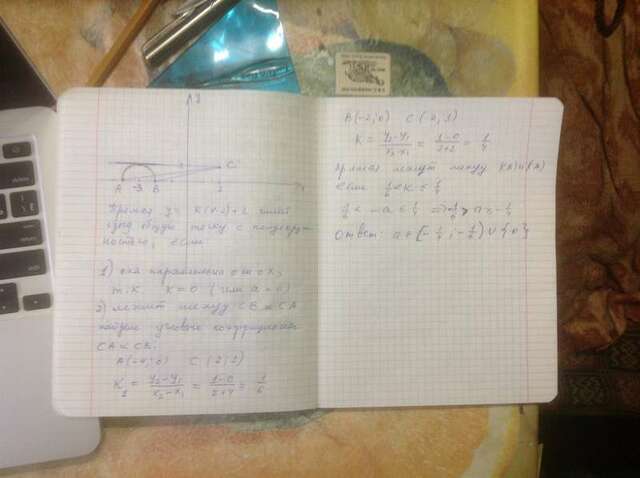 y
C
A -3 B 2
Прямая y = K(x-2)+1 имеет
одну общую точку с полуокруж
ностью, если
1) она параллельна оси OX,
т.к. K=0 (или a=0)
2) лежит между CB и CA
найдем угловые коэффициенты
CA и CB:
A(-4;0) C(2;1)
K₁ = y₂-y₁/x₂-x₁ = 1-0/2+4 = 1/6
B(-2;0) C(2;1)
K = y₂-y₁/x₂-x₁ = 1-0/2+2 = 1/4
Прямая лежит между
если 1/6 < K ≤ 1/4
1/6 < -a ≤ 1/4
Ответ: a ∈ [-1/4; -1/6) ∪ {0}